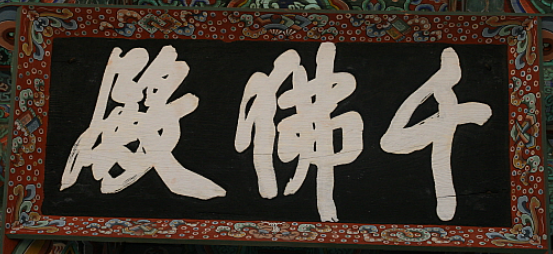 千佛殿